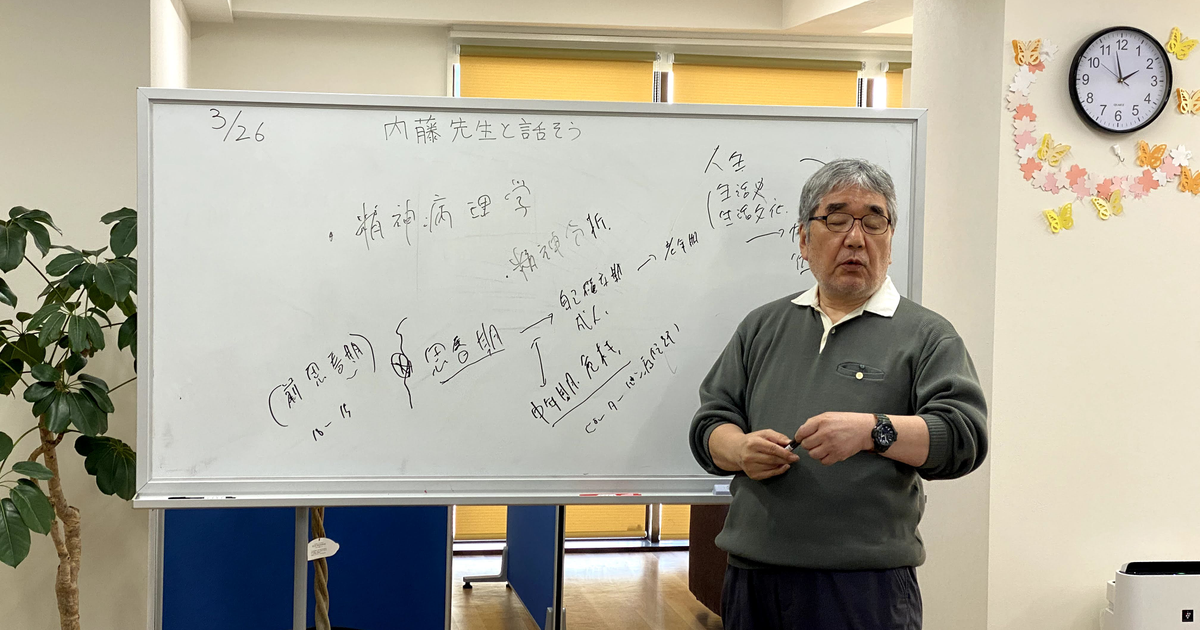 3/26
内藤先生と話そう
人生
生活史
生活文化
・精神病理学
・精神分析
自己確立期
成人
→ 老年期
(前思春期)
10-15
思春期
中年期危機
12
1
2
3
4
5
6
7
8
9
10
11
QUARTZ